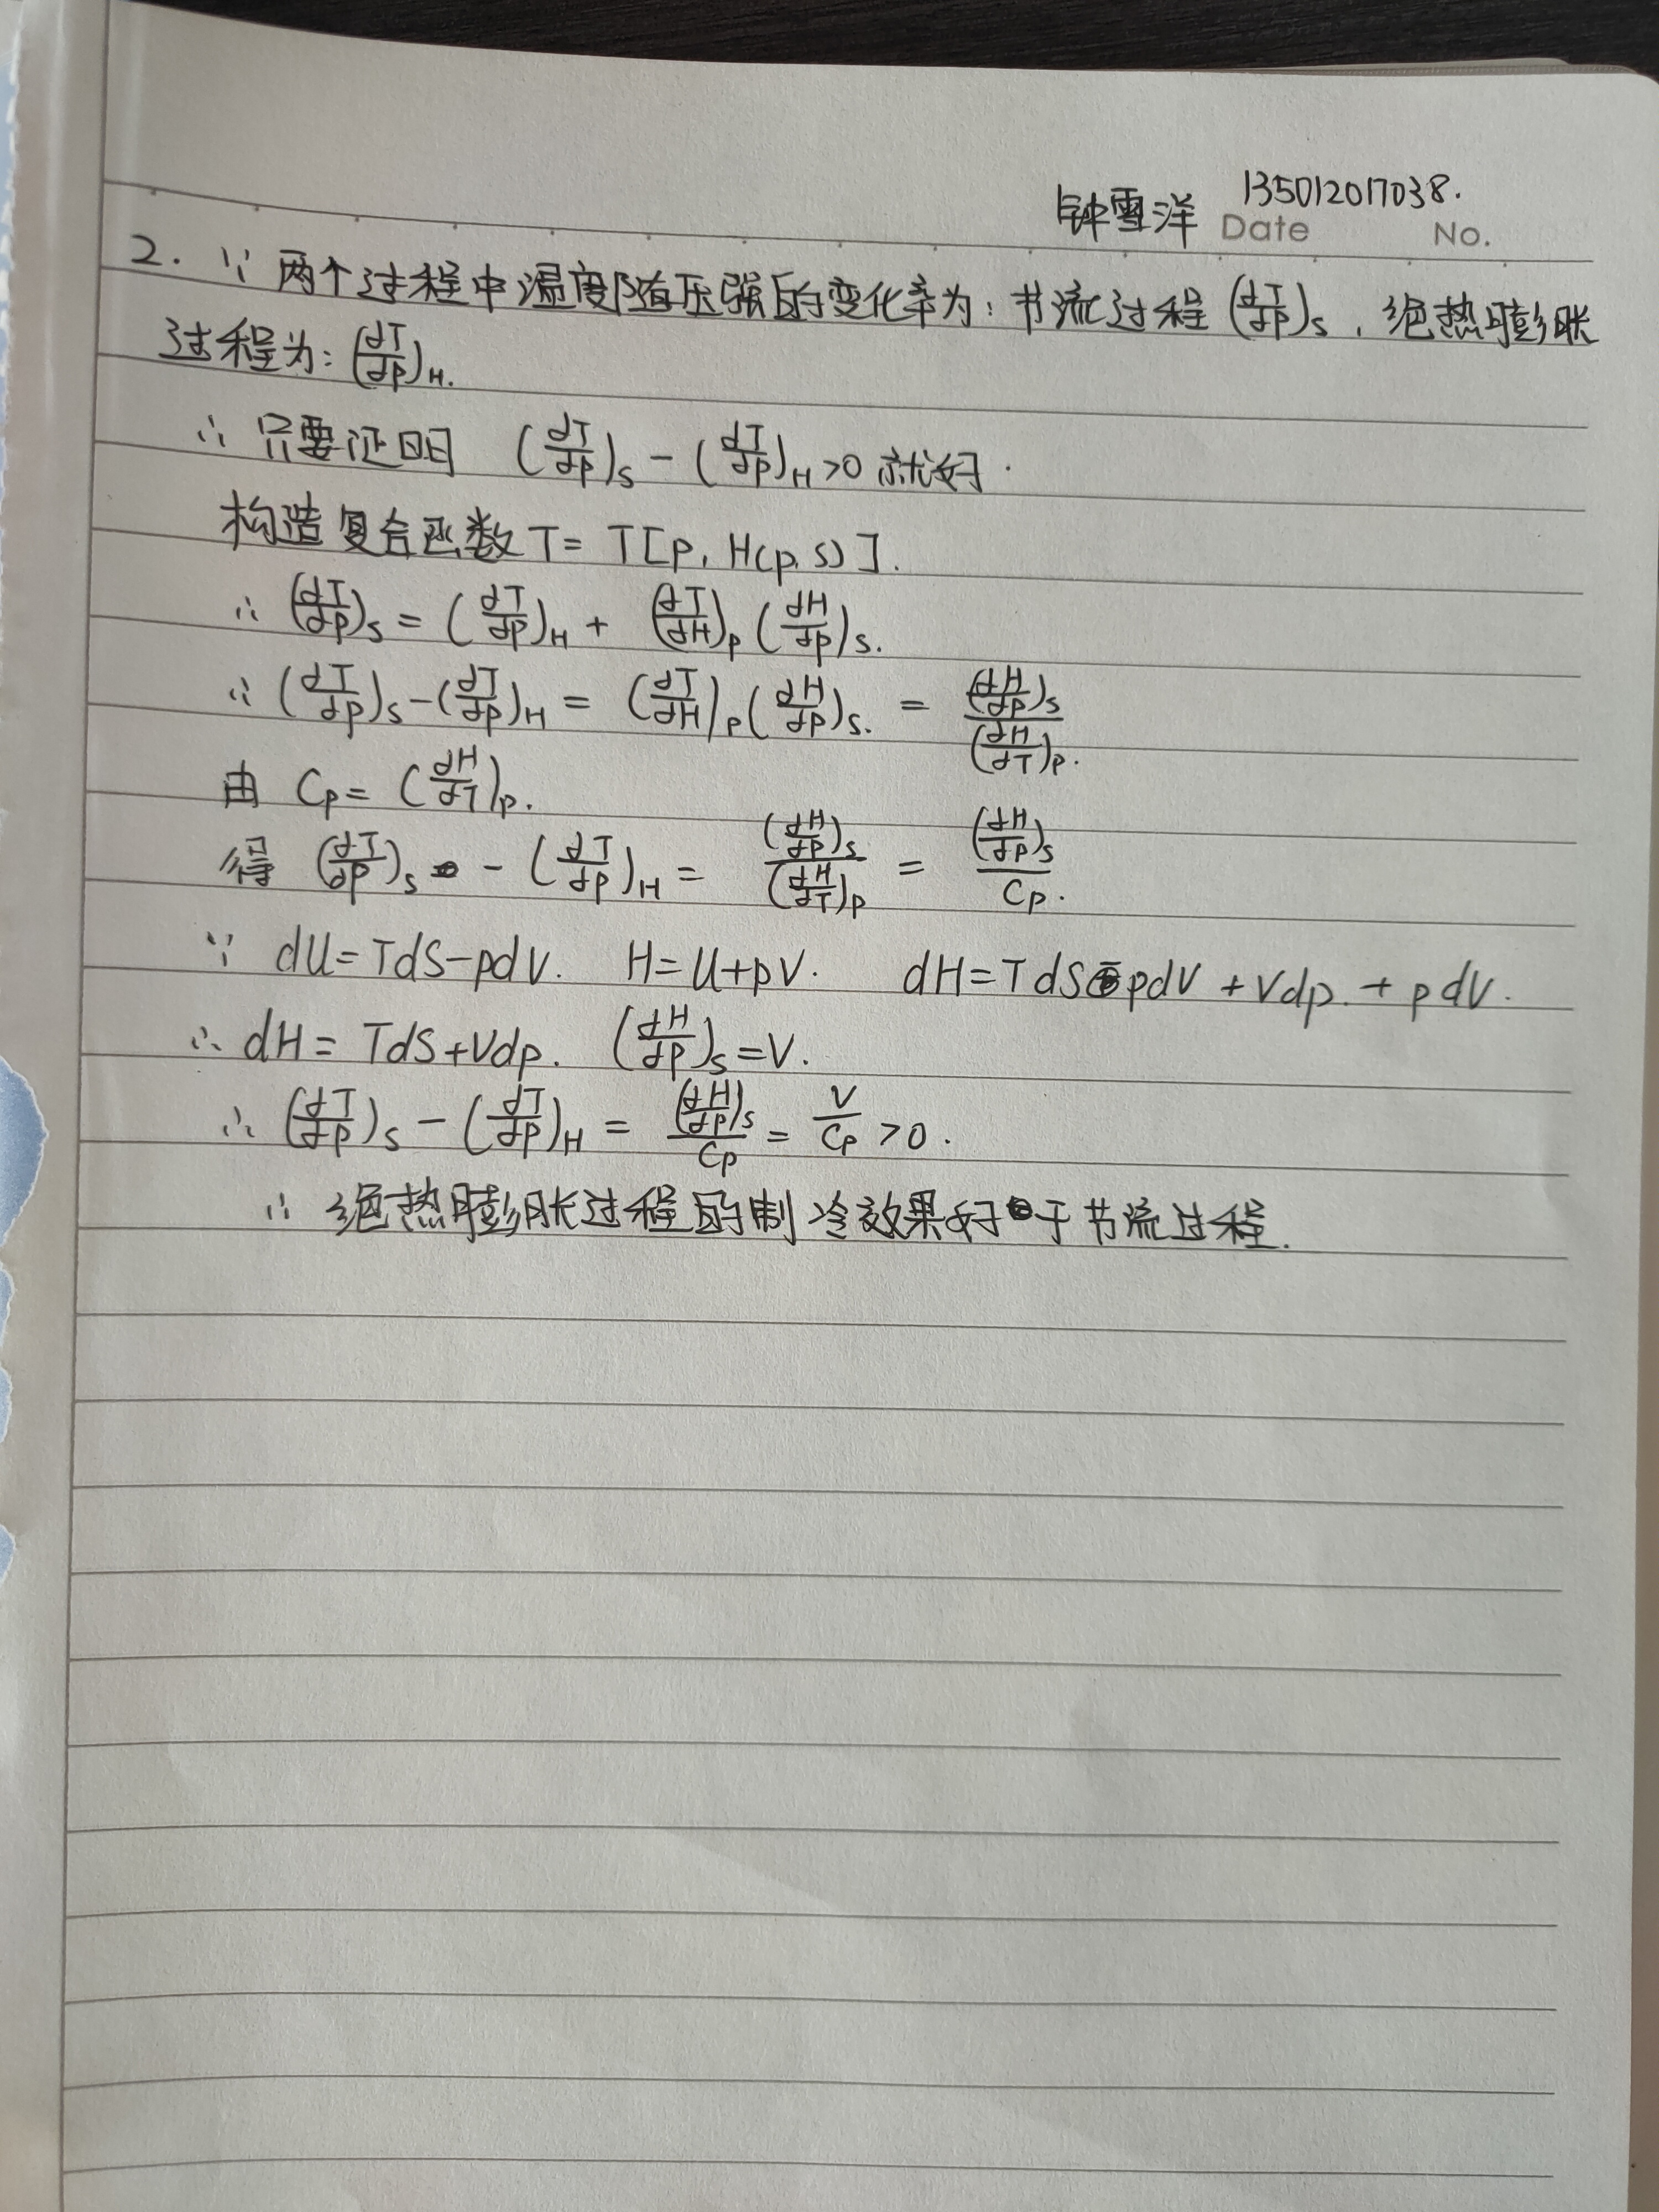 钟雪洋 135012017038.
Date No.
2. ∵ 两个过程中温度随压强的变化率为: 节流过程 (∂T/∂p)_S, 绝热膨胀
过程为: (∂T/∂p)_H.
∴ 只要证明 (∂T/∂p)_S - (∂T/∂p)_H >0 就好.
构造复合函数 T= T[p, H(p, S)].
∴ (∂T/∂p)_S = (∂T/∂p)_H + (∂T/∂H)_p (∂H/∂p)_S.
∴ (∂T/∂p)_S - (∂T/∂p)_H = (∂T/∂H)_p (∂H/∂p)_S. = (∂H/∂p)_S / (∂H/∂T)_p.
由 Cp= (∂H/∂T)_p.
得 (∂T/∂p)_S - (∂T/∂p)_H = (∂H/∂p)_S / (∂H/∂T)_p = (∂H/∂p)_S / Cp.
∵ dU= TdS-pdV. H=U+pV. dH=TdS-pdV +Vdp. + pdV.
∴ dH= TdS+Vdp. (∂H/∂p)_S =V.
∴ (∂T/∂p)_S - (∂T/∂p)_H = (∂H/∂p)_S / Cp = V/Cp >0.
∴ 绝热膨胀过程的制冷效果好于节流过程.